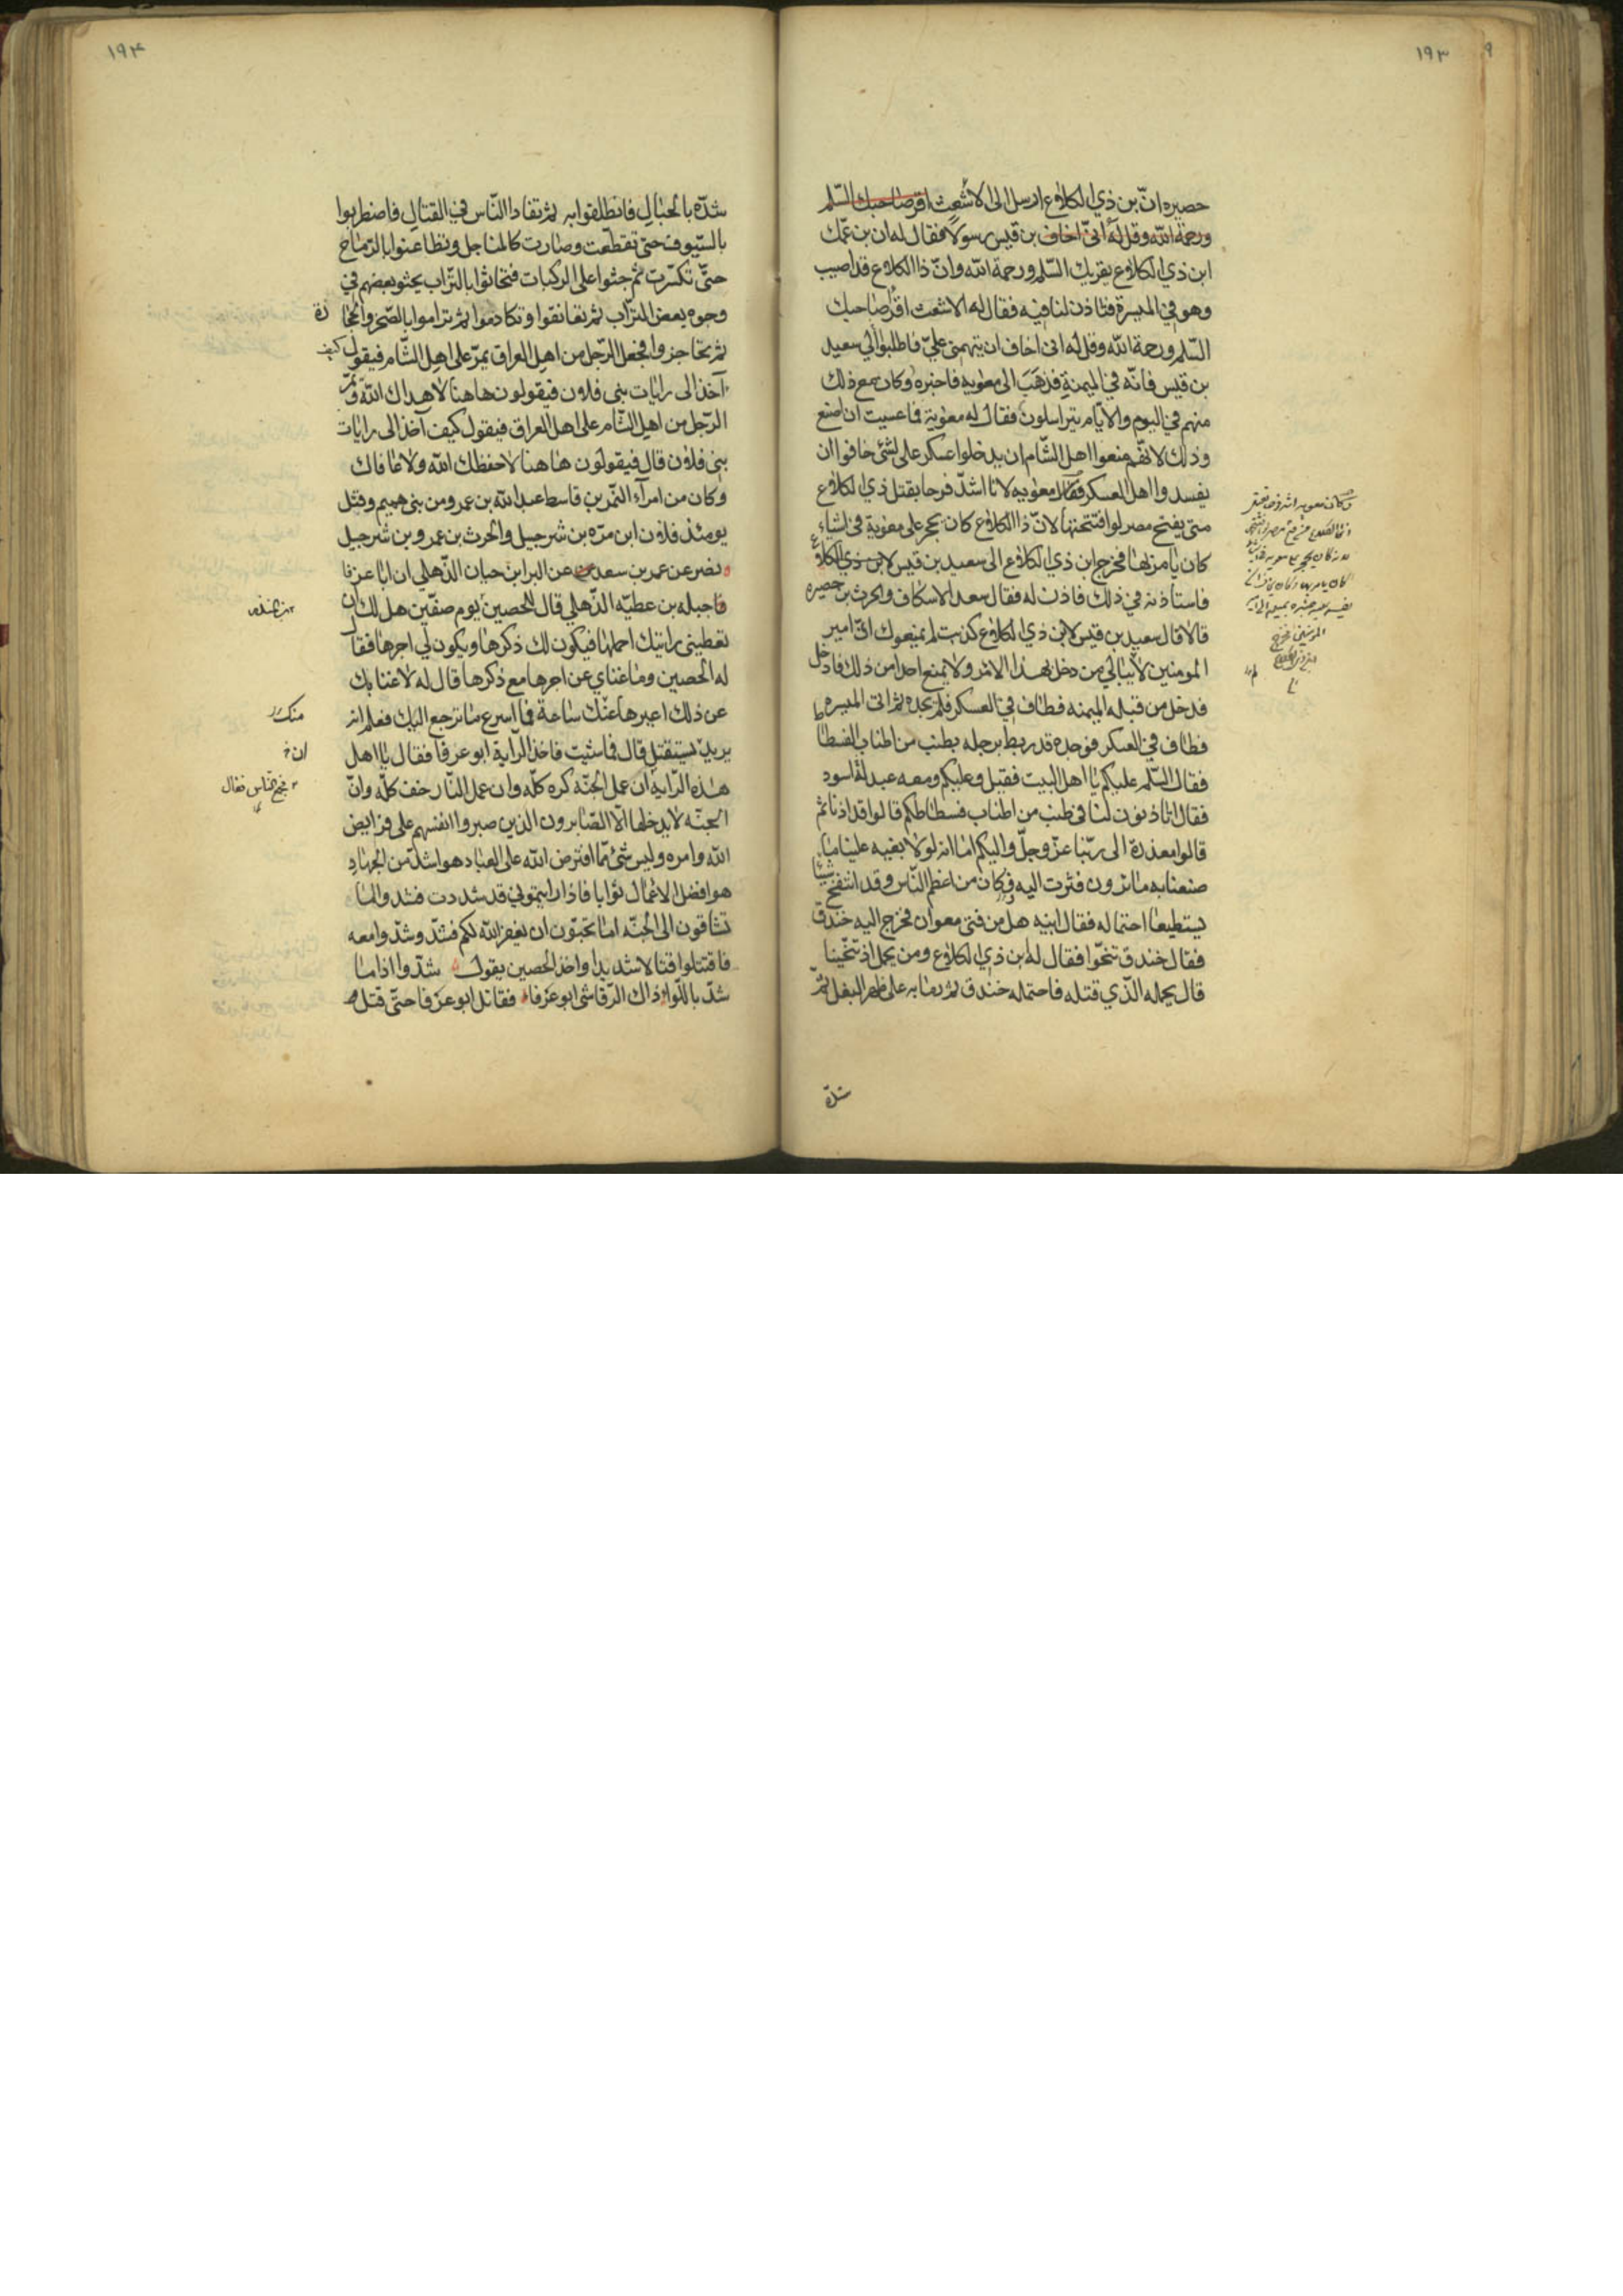 ١٩٣
حصيره انّ بن ذي الكلاع ارسل الى الاشعث اقرصاحبك السّلم
ورحمة الله وقل له انّى اخاف بن قيس رسولا فقال له ان بن عمّك
ابن ذي الكلاع يقريك السّلم ورحمة الله وانّ ذا الكلاع قد اصيب
وهو في الميسرة فتاذن لنا فيه فقال له الاشعث اقرصاحبك
السّلم ورحمة الله وقل له انى اخاف ان يتهمنى علىّ فاطلبوا الى سعيد
بن قيس فانّه في الميمنة فذهب الى معوية فاخبره وكان مع ذلك
منهم في اليوم والايّام يتراسلون فقال له معوية فما عسيت ان اصنع
وذلك لانّهم منعوا اهل الشّام ان يدخلوا عسكر على لشئ خافوا ان
يفسدوا اهل العسكر فقال معوية لانا اشدّ فرحا بقتل ذي الكلاع
متى يفتح مصر لو افتتحتها لانّ ذا الكلاع كان يحجر على معوية في اشياء
كان يامر بها فخرج ابن ذي الكلاع الى سعيد بن قيس لابن ذي الكلاع
فاستاذنه في ذلك فاذن له فقال سعد الاسكاف والحرث بن حصيره
قالا قال سعيد بن قيس لابن ذي الكلاع كذبت لم يمنعوك انّ امير
المومنين لا يبالي من دخل بهذا الامر ولا يمنع احدا من ذلك فادخل
فدخل من قبله الميمنه فطاف في العسكر فلم يجده ثم اتى الميسره
فطاف في العسكر فوجده قد ربط برجله بطنب من اطناب الفسطاط
فقال السّلم عليكم يا اهل البيت فقيل وعليكم ومعه عبد له اسود
فقال اتاذنون لنا في طنب من اطناب فسطاطكم قالوا قد اذنا ثم
قالوا معذرة الى ربّنا عزّ وجلّ واليكم اما انه لولا بغيه علينا ما
صنعنا به ما ترون فنزلت اليه وكان من اعظم النّاس وقد انتفخ شيئا
يستطيعا احتماله فقال ابنيه هل من فتى معوان فخرج اليه خندق
فقال خندق تنحّوا فقال له بن ذي الكلاع ومن يحمل اذ تنحّينا
قال يحمله الّذي قتله فاحتمله خندق ثم رمنا به على ظهر البغل ثمّ
شدّه
١٩۴
شدّه بالحبال فانطلقوا به ثم تمادا النّاس في القتال فاضطربوا
بالسّيوف حتى تقطّعت وصارت كالمناجل وتطاعنوا بالرّماح
حتّى تكسّرت ثم جثوا على الركبات فتحاثوا بالتّراب يحثو بعضهم في
وجوه بعض التراب ثم تعانقوا وتكادموا ثم تراموا بالصّخر والحجارة
ثم تحاجزوا فجعل الرّجل من اهل العراق يمرّ على اهل الشّام فيقول كيف
آخذ الى رايات بنى فلان فيقولون هاهنا لا هداك الله ومرّ
الرّجل من اهل الشام على اهل العراق فيقول كيف آخذ الى رايات
بنى فلان قال فيقولون هاهنا لا حفظك الله ولا عافاك
وكان من امرآء النّمر بن قاسط عبد الله بن عمرو من بنى هميم وقتل
يومئذ فلان ابن مرّه بن شرجيل والحرث بن عمرو بن شرجيل
نصر عن عمر بن سعد عن البرا بن حيان الذّهلي ان ابا عرفا
جبله بن عطيّه الذّهلي قال للحصين يوم صفّين هل لك ان
تعطينى رايتك احملها فيكون لك ذكرها ويكون لي اجرها فقال
له الحصين وما غناي عن اجرها مع ذكرها قال له لا غنا بك
عن ذلك اعيرها عنّك ساعة فما اسرع ما ترجع اليك فعلم انه
يريد يستقتل قال فما شيت فاخذ الرّاية ابو عرفا فقال يا اهل
هذه الرّاية ان عمل الجنّة كره كلّه وان عمل النّار خف كلّه وانّ
الجنّه لا يدخلها الّا الصّابرون الذين صبروا انفسهم على فرايض
الله وامره وليس شئ ممّا افترض الله على العباد هو اشدّ من الجهاد
هو افضل الاعمال ثوابا فاذا رايتموني قد شددت فشدوا اما
تشتاقون الى الجنّه اما تحبّون ان يغفر الله لكم فشدّ وشدّوا معه
فاقتتلوا قتالا شديدا واخذ الحصين يقول شدّوا اذا ما
شدّ باللّواء ذاك الرّقاشى ابو عرفاء فقاتل ابو عرفا حتّى قتل
منك
ان